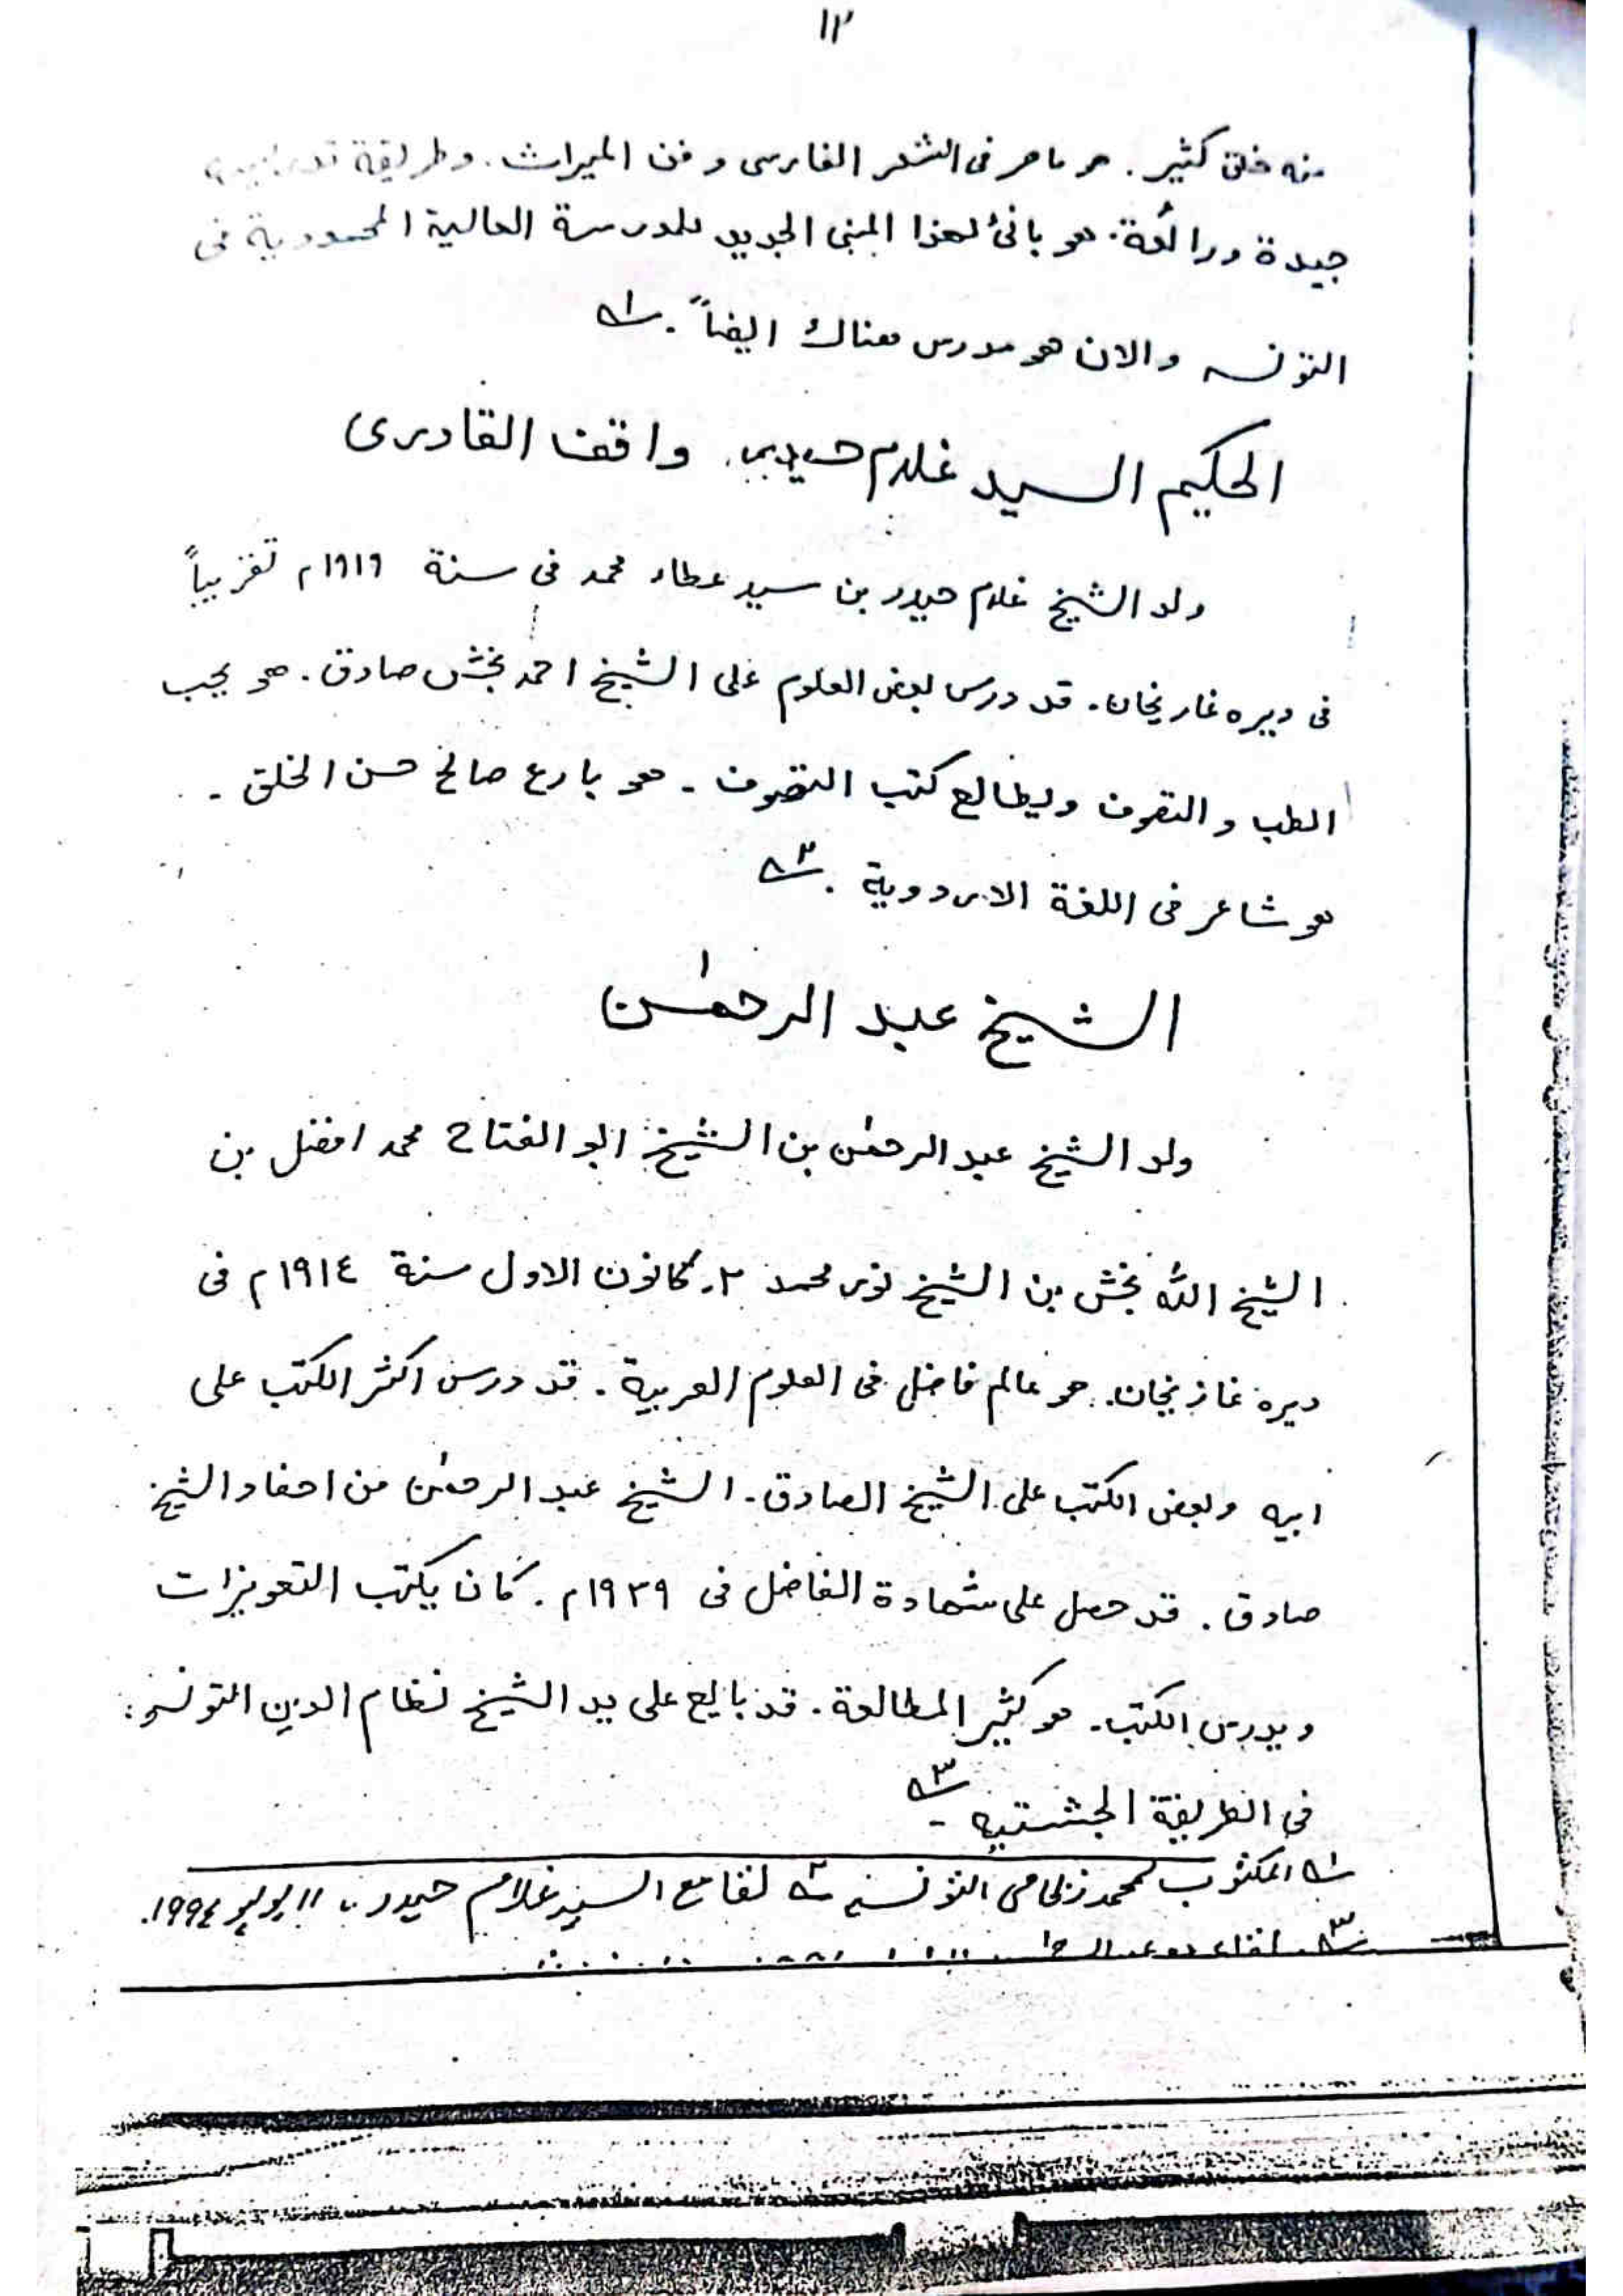 ١٢
منه خلق كثير. هو ماهر فى الشعر الفارسى و فن الميراث. وطريقة
جيدة ورائعة. هو بانئ لهذا المبنى الجديد للمدرسة العالية المحمودية فى
التونسه والان هو مدرس هناك ايضاً. ؎١
الحكيم السيد غلام حيدر واقف القادرى
ولد الشيخ غلام حيدر بن سيد عطاء محمد فى سنة ١٩١٩م تقريباً
فى ديره غازيخان. قد درس بعض العلوم على الشيخ احمد بخش صادق. هو يحب
الطب و التصوف ويطالع كتب التصوف - هو بارع صالح حسن الخلق -
هو شاعر فى اللغة الاردوية. ؎٢
الشيخ عبد الرحمٰن
ولد الشيخ عبد الرحمٰن بن الشيخ ابو الفتاح محمد افضل بن
الشيخ الله بخش بن الشيخ نور محمد ٢٠ كانون الاول سنة ١٩١٤م فى
ديره غازيخان. هو عالم فاضل فى العلوم العربية. قد درس اكثر الكتب على
ابيه وبعض الكتب على الشيخ الصادق. الشيخ عبد الرحمٰن من احفاد الشيخ
صادق. قد حصل على شهادة الفاضل فى ١٩٣٩م. كان يكتب التعويزات
ويدرس الكتب. هو كثير المطالعة. قد بايع على يد الشيخ نظام الدين التونسو
فى الطريقة الجشتيه - ؎٣
؎١ المكتوب لمحمد نظامى التونسه ؎٢ لقا مع السيد غلام حيدر ١١ يوليو ١٩٩٤.
؎٣